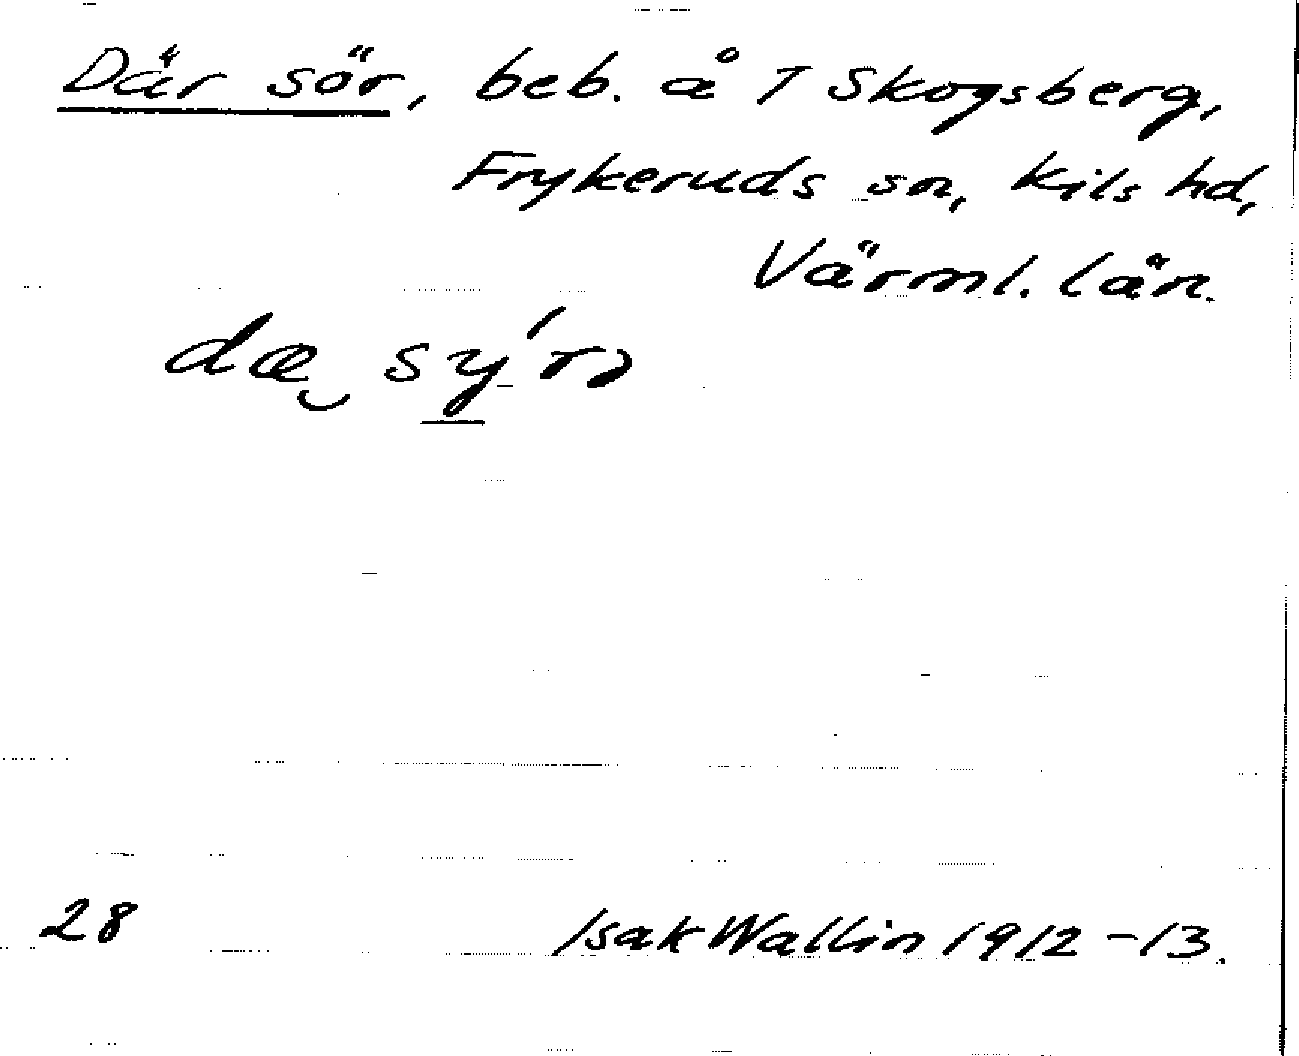 Där sör, beb. å 1 Skogsberg,
Frykeruds sn, Kils hd,
Värml. län.
dæ sy'rɔ
28
Isak Wallin 1912-13.